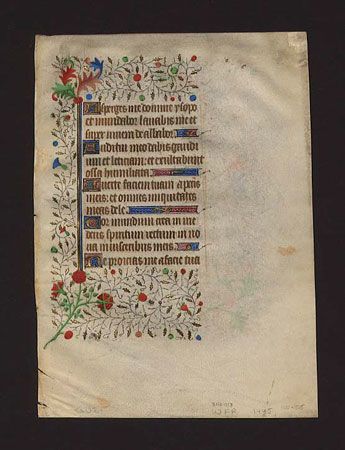 Asperges me domine ysopo
et mundabor lauabis me et
super niuem dealbabor.
Auditui meo dabis gaudi
um et leticiam: et exultabunt
ossa humiliata
Auerte faciem tuam a peccis
meis: et omnes iniquitates
meas dele.
Cor mundum crea in me
deus spiritum rectum in no
ua in uisceribus meis.
Ne proicias me a facie tua
WFR
1435